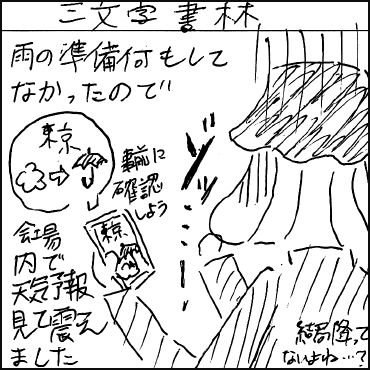 三文字書林
雨の準備何もして
なかったので
東京
事前に
確認
しよう
ズッ…
東京
会場
内で
天気予報
見て震え
ました
結局降って
ないよね…?